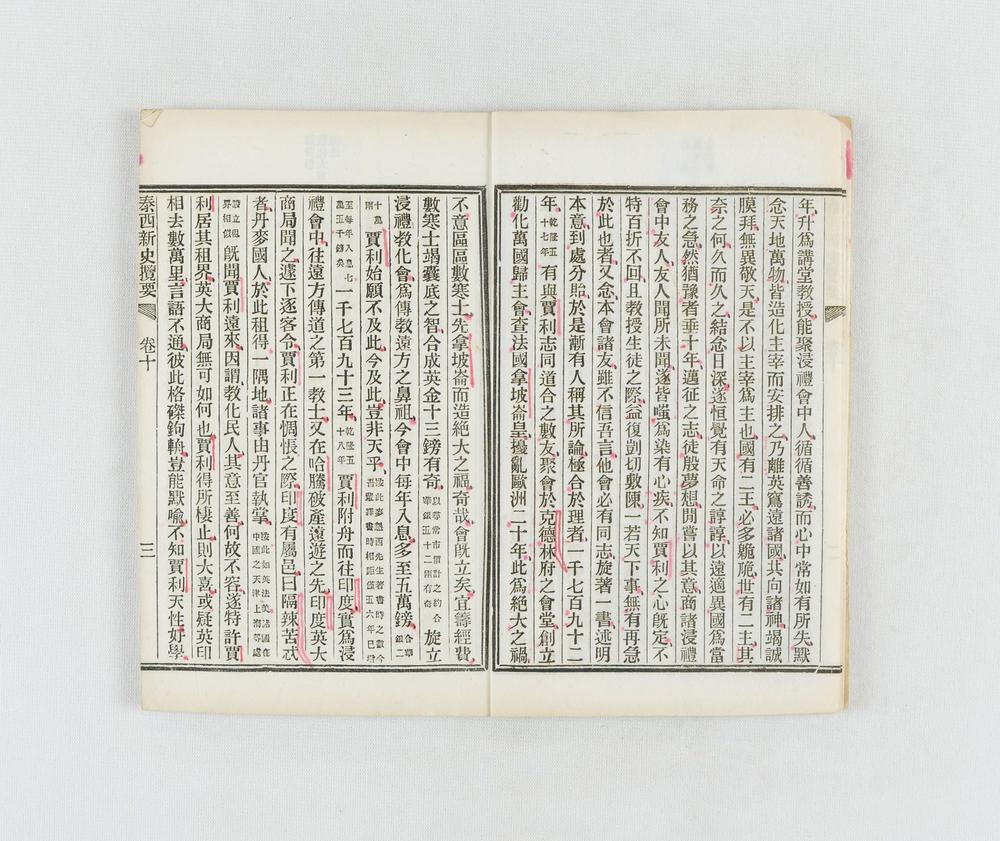 年升爲講堂教授能聚浸禮會中人循循善誘而心中常如有所失默
念天地萬物皆造化主宰而安排之乃離英寫遠諸國其向諸神竭誠
膜拜無異敬天是不以主宰爲主也國有二王必多臲卼世有二主其
奈之何久而久之結念日深遂恒覺有天命之諄諄以遠適異國爲當
務之急然猶豫者垂十年邁征之志徒殷夢想閒嘗以其意商諸浸禮
會中友人友人聞所未聞遂皆嗤爲染有心疾不知賈利之心旣定不
特百折不回且教授生徒之際益復剴切敷陳一若天下事無有再急
於此也者又念本會諸友雖不信吾言他會必有同志旋著一書述明
本意到處分貽於是漸有人稱其所論極合於理者一千七百九十二
年乾隆五十七年有與賈利志同道合之數友聚會於克德林府之會堂創立
勸化萬國歸主會查法國拿坡崙皇擾亂歐洲二十年此爲絕大之禍
不意區區數寒士先拿坡崙而造絕大之福奇哉會旣立矣宜籌經費
數寒士竭囊底之智合成英金十三鎊有奇以尋常市價計之約合華銀五十二兩有奇旋立
浸禮教化會爲傳教遠方之鼻祖今會中每年入息多至五萬鎊合華銀二
十萬兩賈利始願不及此今及此豈非天乎按此麥懇西先生著書時之數今吾輩譯書時相距僅五六年已增
至每年入息七萬五千鎊矣一千七百九十三年乾隆五十八年賈利附舟而往印度實爲浸
禮會中往遠方傳道之第一教士又在哈騰破產遠遊之先印度英大
商局聞之遽下逐客令賈利正在惆悵之際印度有屬邑曰隔辣苦忒
者丹麥國人於此租得一隅地諸事由丹官執掌按此如英法美諸國在中國之天津上海等處
設立租界相似旣聞賈利遠來因謂教化民人其意至善何故不容遂特許賈
利居其租界英大商局無可如何也賈利得所棲止則大喜或疑英印
相去數萬里言語不通彼此格磔鉤輈豈能默喻不知賈利天性好學
泰西新史攬要 卷十 三